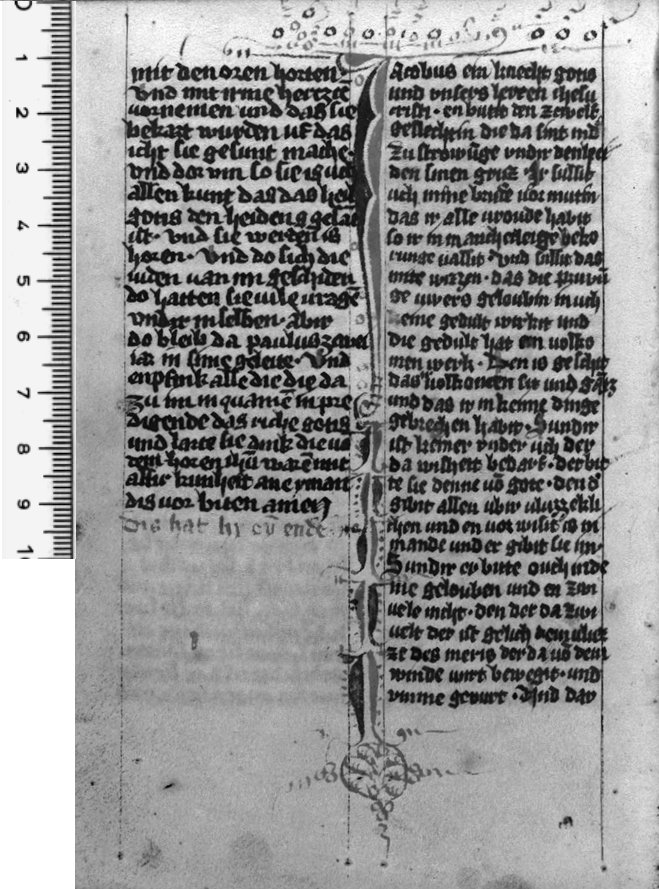 mit den oren horten
vnd mit irme hertze
vornemen und das sie
bekart wurden uf das
icht sie gesunt mache·
vnd dor vm so sie is uch
allen kunt das das heil
gotis den heiden is gesāt
ist· vnd sie werden is
horen· vnd do sich die
iuden van im geschiden
do hatten sie vile vrage
vndir in selben· abir
do bleib da paulus zwei
iar in sime geleite· Vnd
enpfink alle die die da
zu im in quamē in pre
digende das riche gotis
und larte sie dink die vō
dem horen ihū warē mit
allir kunheit ane ymant
dis vor biten amen
Dis hat hy eȳ ende
Acobus ein knecht gotis
und vnsers herren ihesu
cristi· en butit den zcwelf
geslechtin die da sint in d
zu strowūge vndir den
den sinen gruz· Ir sullit
uch mine brudere vor mutin
das ir alle vroude habit
so ir in manchirleige beko
runge vallit· Vnd sullit das
mite wizzen· das die pruvū
ge uwers geloubin in uch
eine gedult wirkit und
die gedult hat ein volko
men werk· Den is geschit
das ir volkomen sit und gātz
und das ir in keime dinge
gebrechen habit· Sundir
ist keiner vnder uch der
da wisheit bedarf· der bit
te sie denne vō gote· den d'
gibit allen ubir vluzzekli
chen und en vor wisit is ni
mande und er gibit sie im·
Sundir er bitte ouch in de
me gelouben und en zwi
uele nicht· den der da zwi
uelt der ist gelich dem vliez
ze des meris der da vō dem
winde wirt bewegit· und
vmme gevurt· Vnd dar